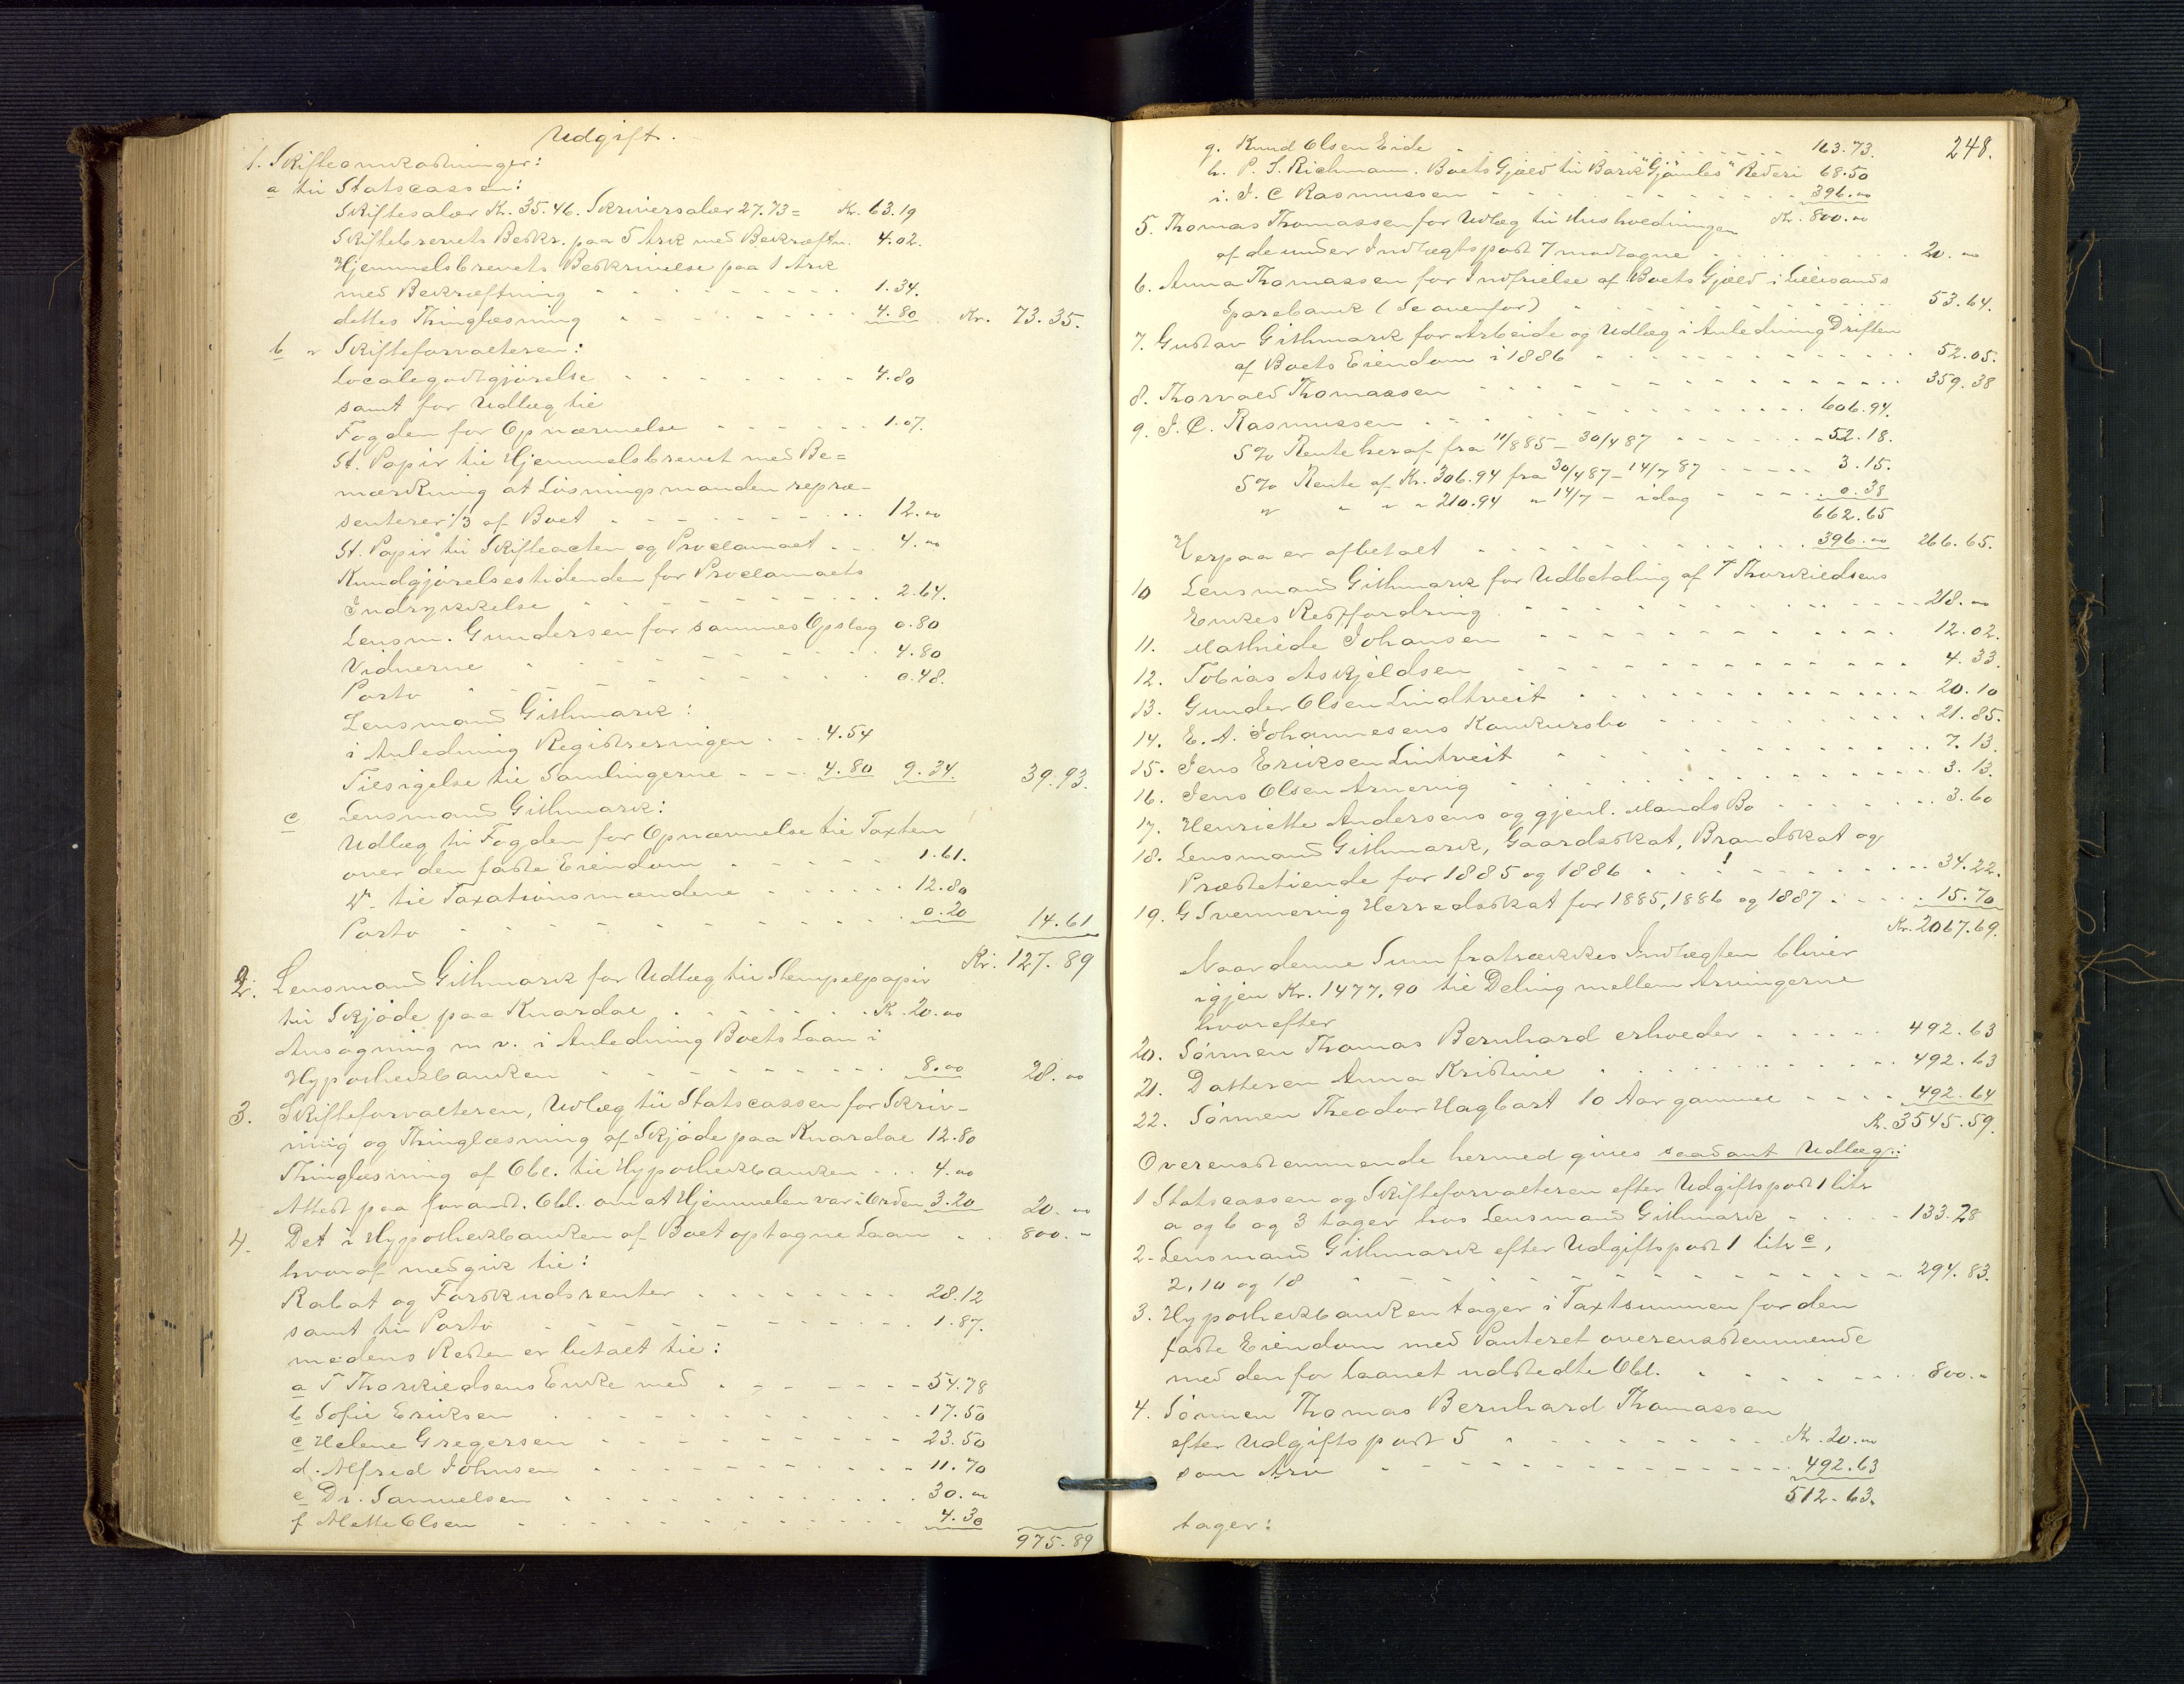 Udgift.
1. Skifteomkostninger:
a til Statscassen:
Skiftesalær Kr. 35.46. Skriversalær 27.73 = Kr. 63.19
Skiftebrevets Beskr. paa 5 Ark med Bekræftn. 4.02.
Hjemmelsbrevets Beskrivelse paa 1 Ark
med Bekræftning - - - - 1.34.
dettes Thinglæsning - - - - 4.80 Kr. 73.35.
b " Skifteforvalteren:
Localegodtgjörelse - - - - 4.80
samt for Udlæg til
Fogden for Opnævnelse - - - - 1.07.
St. Papir til Hjemmelsbrevet med Be=
mærkning at Lösningsmanden repræ-
senterer 1/3 af Boet - - - - 12.00
St. Papir til Skifteacten og Proclamaet - - 4.00
Kundgjörelsestidenden for Proclamaets
Indrykkelse - - - - 2.64.
Lensm. Gundersen for sammes Opslag 0.80
Vidnerne - - - - 4.80
Porto - - - - 0.48.
Lensmand Githmark:
i Anledning Registreringen - - 4.54
Tilsigelse til Samlingerne - - - 4.80 9.34. 39.93.
c Lensmand Githmark:
Udlæg til Fogden for Opnævnelse til Taxten
over den faste Eiendom - - - - 1.61.
do til Taxationsmændene - - - - 12.80
Porto - - - - 0.20 14.61
Kr. 127.89
2. Lensmand Githmark for Udlæg til Stempelpapir
til Skjöde paa Knardal - - - - Kr. 20.00
Ansögning m v. i Anledning Boets Laan i
Hypothekbanken - - - - 8.00 28.00
3. Skifteforvalteren, Udlæg til Statscassen for Skriv-
ning og Thinglæsning af Skjöde paa Knardal 12.80
Thinglæsning af Obl. til Hypothekbanken - - - 4.00
Attest paa forandt. Obl. om at Hjemmelen var i Orden 3.20 20.00
4. Det i Hypothekbanken af Boet optagne Laan - - 800.-
hvoraf medgik til:
Rabat og Forskudsrenter - - - - 28.12
samt til Porto - - - - 1.87.
medens Resten er betalt til:
a T Thorkildsens Enke med - - - - 54.78
b Sofie Eriksen - - - - 17.50
c Helene Gregersen - - - - 23.50
d. Alfred Johnsen - - - - 11.70
e Dr. Samuelsen - - - - 30.00
f Alette Olsen - - - - 4.30
975.89
248.
g. Knud Olsen Eide - - - - 163.73.
h. P. S. Richmann. Boets Gjæld til Bark "Gjömles" Rederi 68.50
i. J. C Rasmussen - - - - 396.00
Kr. 800.00
5. Thomas Thomassen for Udlæg til Husholdningen
af de under Indtægtspost 7 modtagne - - - - 20.00
6. Anna Thomassen for Indfrielse af Boets Gjæld i Lillesands
Sparebank (Se ovenfor) - - - - 53.64.
7. Gustav Githmark for Arbeide og Udlæg i Anledning Driften
af Boets Eiendom i 1886 - - - - 52.05.
8. Thorvald Thomassen - - - - 359.38
9. J. C. Rasmussen - - - - 606.94.
5% Rente heraf fra 11/8 85 - 30/4 87 - - - - 52.18.
5% Rente af Kr. 306.94 fra 30/4 87 - 14/7 87 - - - - 3.15.
" " " " 210.94 " 14/7 - idag - - - - 0.38
662.65
Herpaa er afbetalt - - - - 396.00 266.65.
10 Lensmand Githmark for Udbetaling af T Thorkildsens
Enkes Restfordring - - - - 218.00
11. Mathilde Johansen - - - - 12.02.
12. Tobias Askjeldsen - - - - 4.33.
13. Gunder Olsen Lindtveit - - - - 20.10
14. E. A. Johannesens Konkursbo - - - - 21.85.
15. Jens Eriksen Lintveit - - - - 7.13.
16. Jens Olsen Arnevig - - - - 3.13.
17. Henriette Andersens og gjenl. Mands Bo - - - - 3.60
18. Lensmand Githmark, Gaardskat, Brandskat og
Præstetiende for 1885 og 1886 - - - - 34.22.
19. G Svennevig Herredskat for 1885, 1886 og 1887 - - - - 15.70
Kr. 2067.69.
Naar denne Sum fratrækkes Indtægten bliver
igjen Kr. 1477.90 til Deling mellem Arvingerne
hvorefter
20. Sönnen Thomas Bernhard erholder - - - - 492.63
21. Datteren Anna Kristine - - - - 492.63
22. Sönnen Theodor Hagbart 10 Aar gammel - - - - 492.64
Kr. 3545.59.
Overensstemmende hermed gives saadant Udlæg:
1 Statscassen og Skifteforvalteren efter Udgiftspost 1 litr
a og b og 3 tager hos Lensmand Githmark - - - - 133.28
2. Lensmand Githmark efter Udgiftspost 1 litr c,
2, 10 og 18 - - - - 294.83.
3. Hypothekbanken tager i Taxtsummen for den
faste Eiendom med Panteret overensstemmende
med den for Laanet udstedte Obl. - - - - 800.-
4. Sönnen Thomas Bernhard Thomassen
efter Udgiftspost 5 - - - - Kr. 20.00
som Arv - - - - 492.63
512.63.
tager: